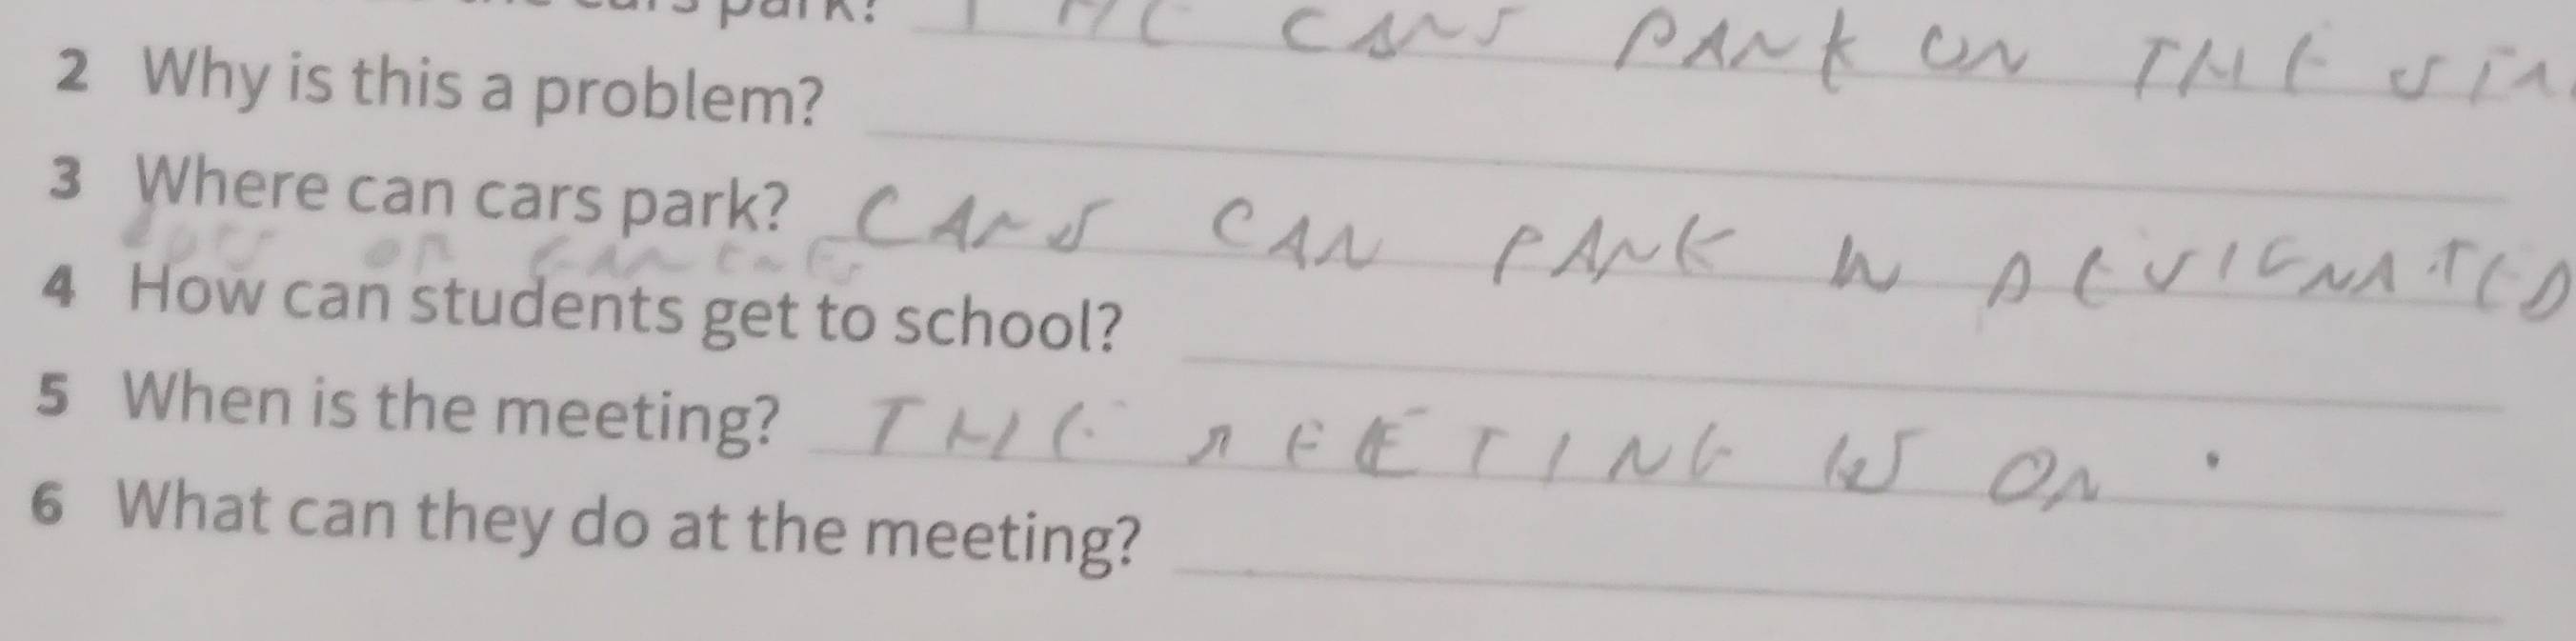 cars park? THE CARS PARK ON THE
2 Why is this a problem?
3 Where can cars park? CARS CAN PARK IN DESIGNATED
4 How can students get to school?
5 When is the meeting? THE MEETING IS ON .
6 What can they do at the meeting?